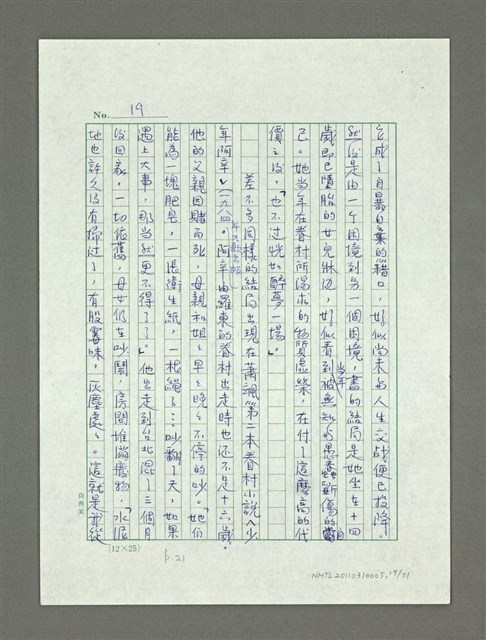 No. 19
它成了自暴自棄的藉口,好似尚未與人生交戰便已投降。
然後是由一個困境到另一個困境,書的結局是她坐在十四
歲即已墮胎的女兒牀邊,好似看到當年被無知的愚蠢斲傷的自
己。她當年在眷村所渴求的物質虛榮,在付了這麼高的代
價之後,「也不过恍如醉夢一場」。
差不多同樣的結局出現在蕭颯第二本眷村小說〈少
年阿辛〉(一九八四。阿辛由羅東的眷村出走時也还不足十六歲。
他的父親因賭而死,母親和姐姐早早晚晚不停的吵。「她们
能為一塊肥皂,一張衛生紙,一根繩子……吵翻了天,如果
遇上大事,那當然更不得了了。」他出走到台北混了三個月
後回家,一切依舊,母女仍在吵鬧,房間堆徧癈物,「水泥
地也許久沒有掃过了,有股霉味,灰塵處處。這就是我從
(12×25)
p.21
NMTL20110310005,19/51